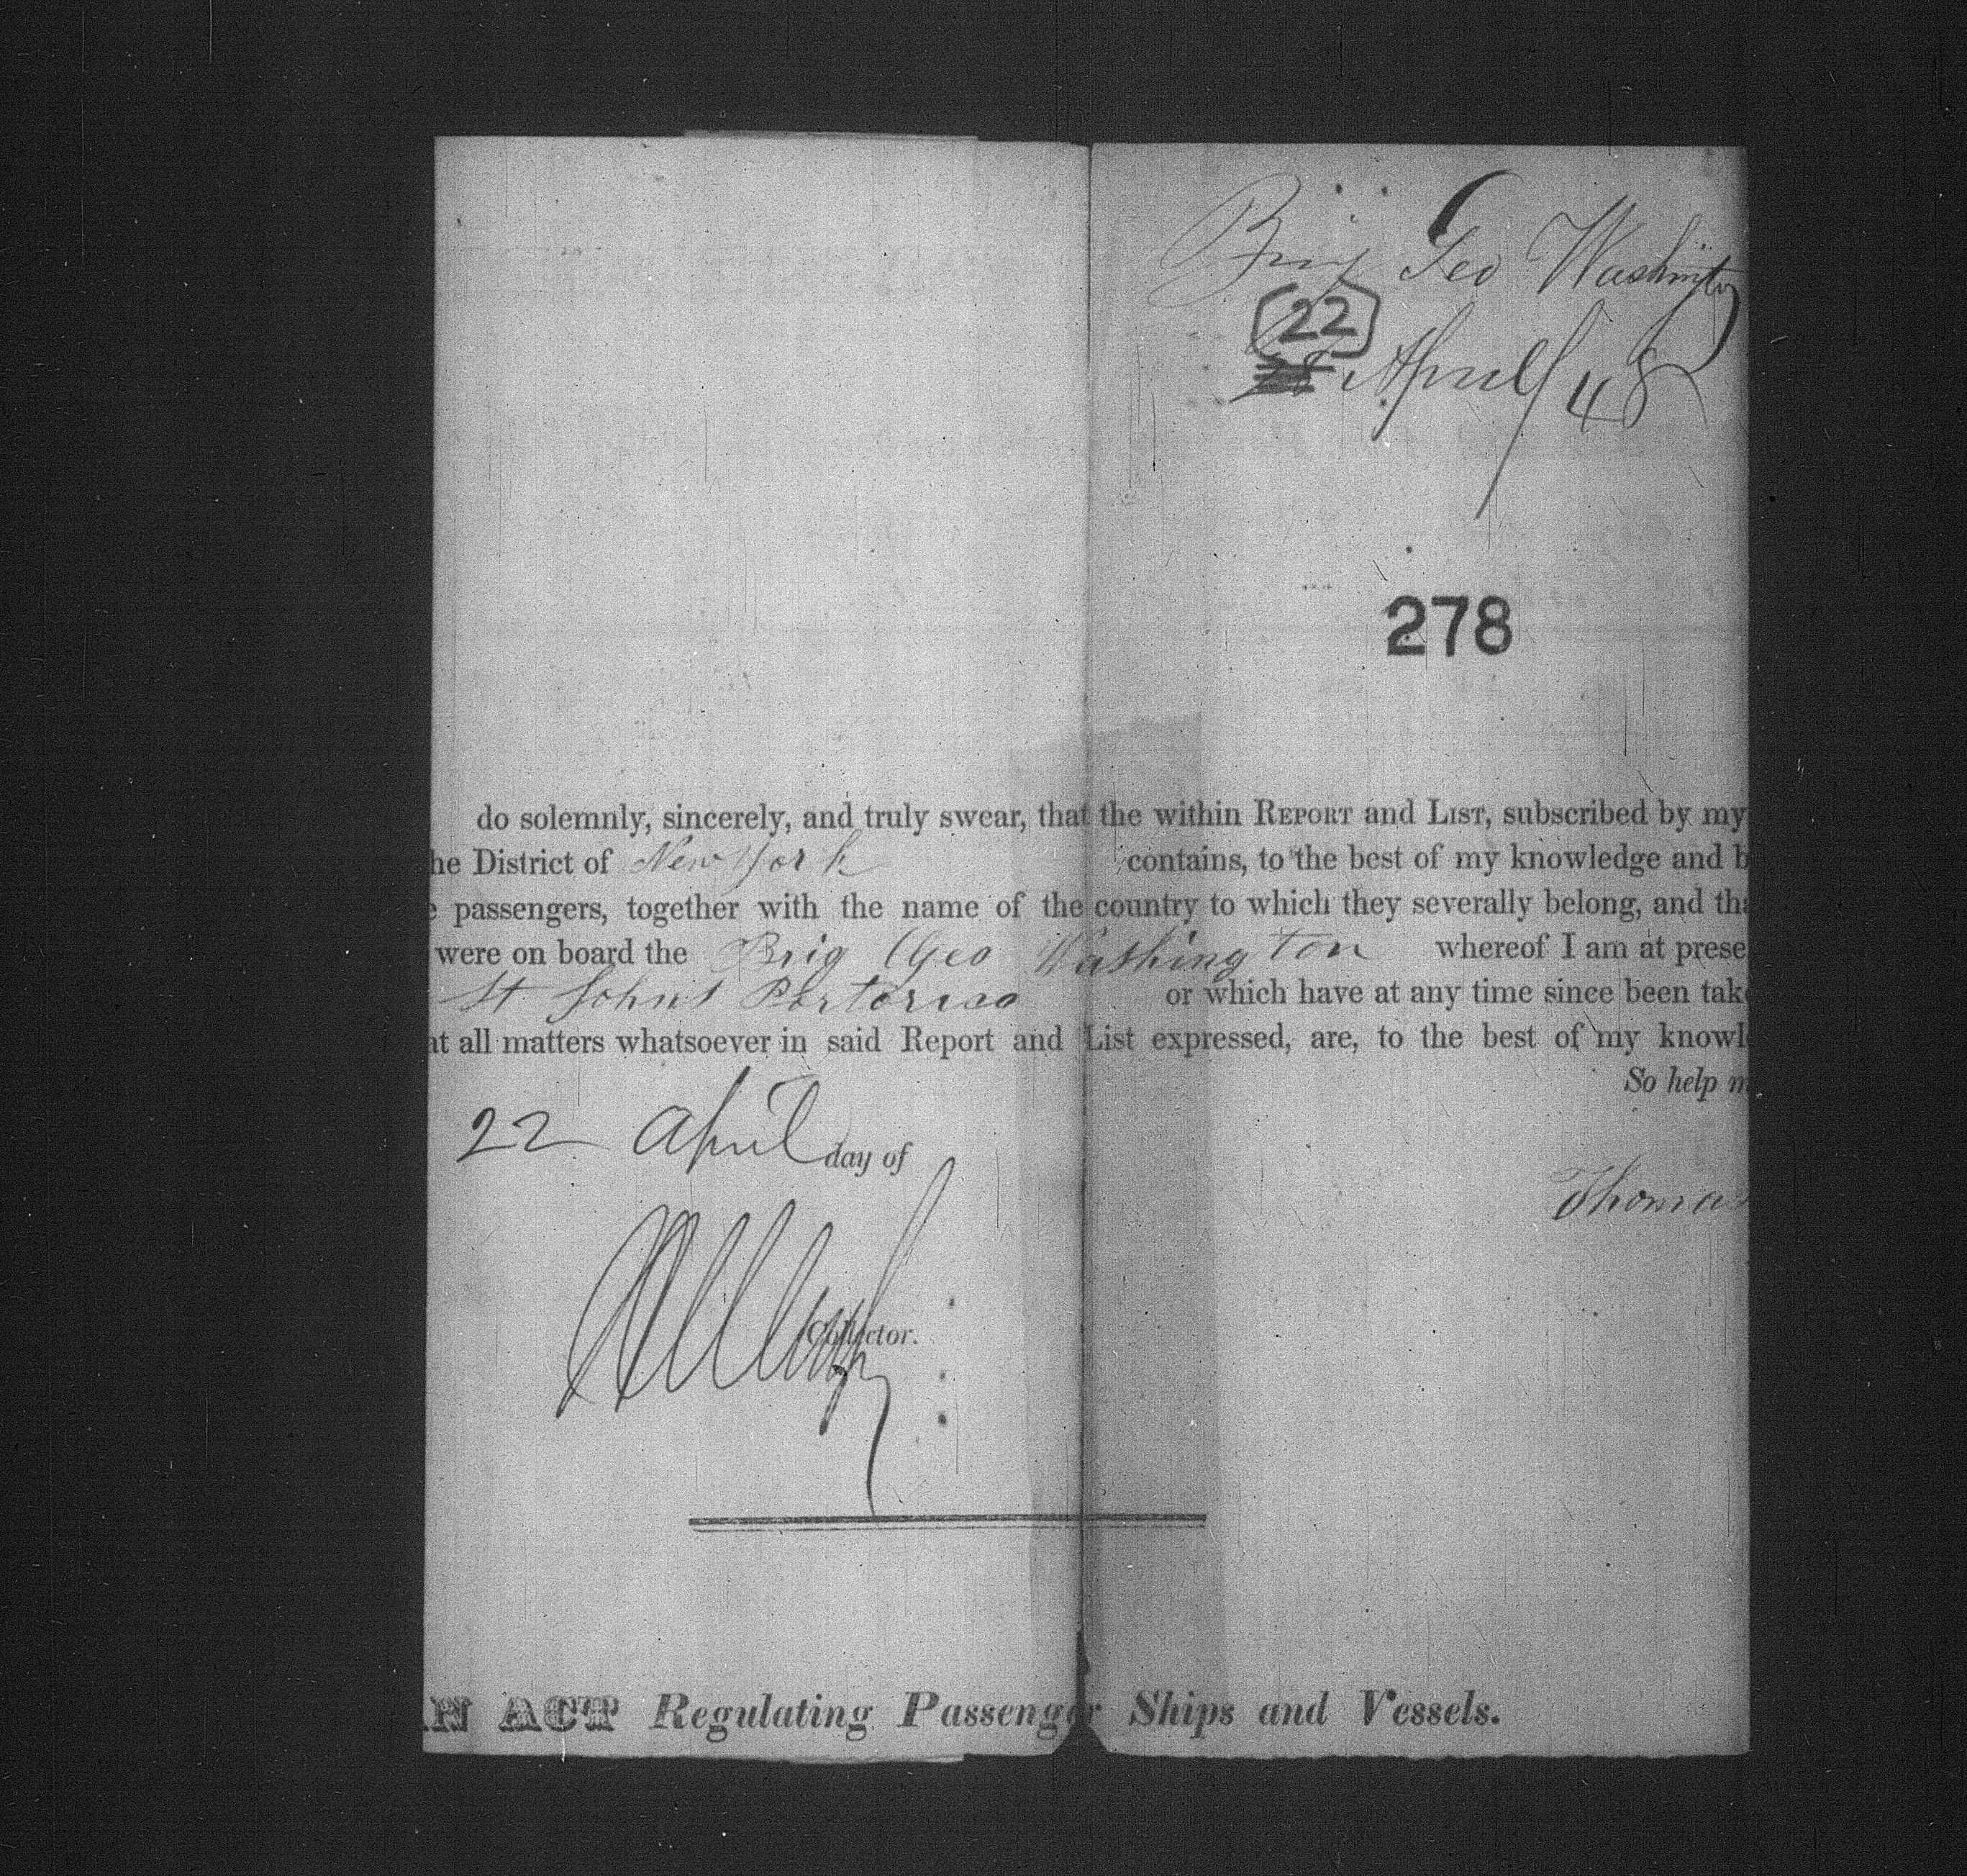 Brig Geo Washington
22
April 48
278
do solemnly, sincerely, and truly swear, that the within REPORT and LIST, subscribed by my
he District of New York contains, to the best of my knowledge and b
e passengers, together with the name of the country to which they severally belong, and tha
were on board the Brig Geo Washington whereof I am at prese
St Johns Portorico or which have at any time since been take
at all matters whatsoever in said Report and List expressed, are, to the best of my knowl
So help m
22 April day of
Thomas
Collector.
AN ACT Regulating Passenger Ships and Vessels.